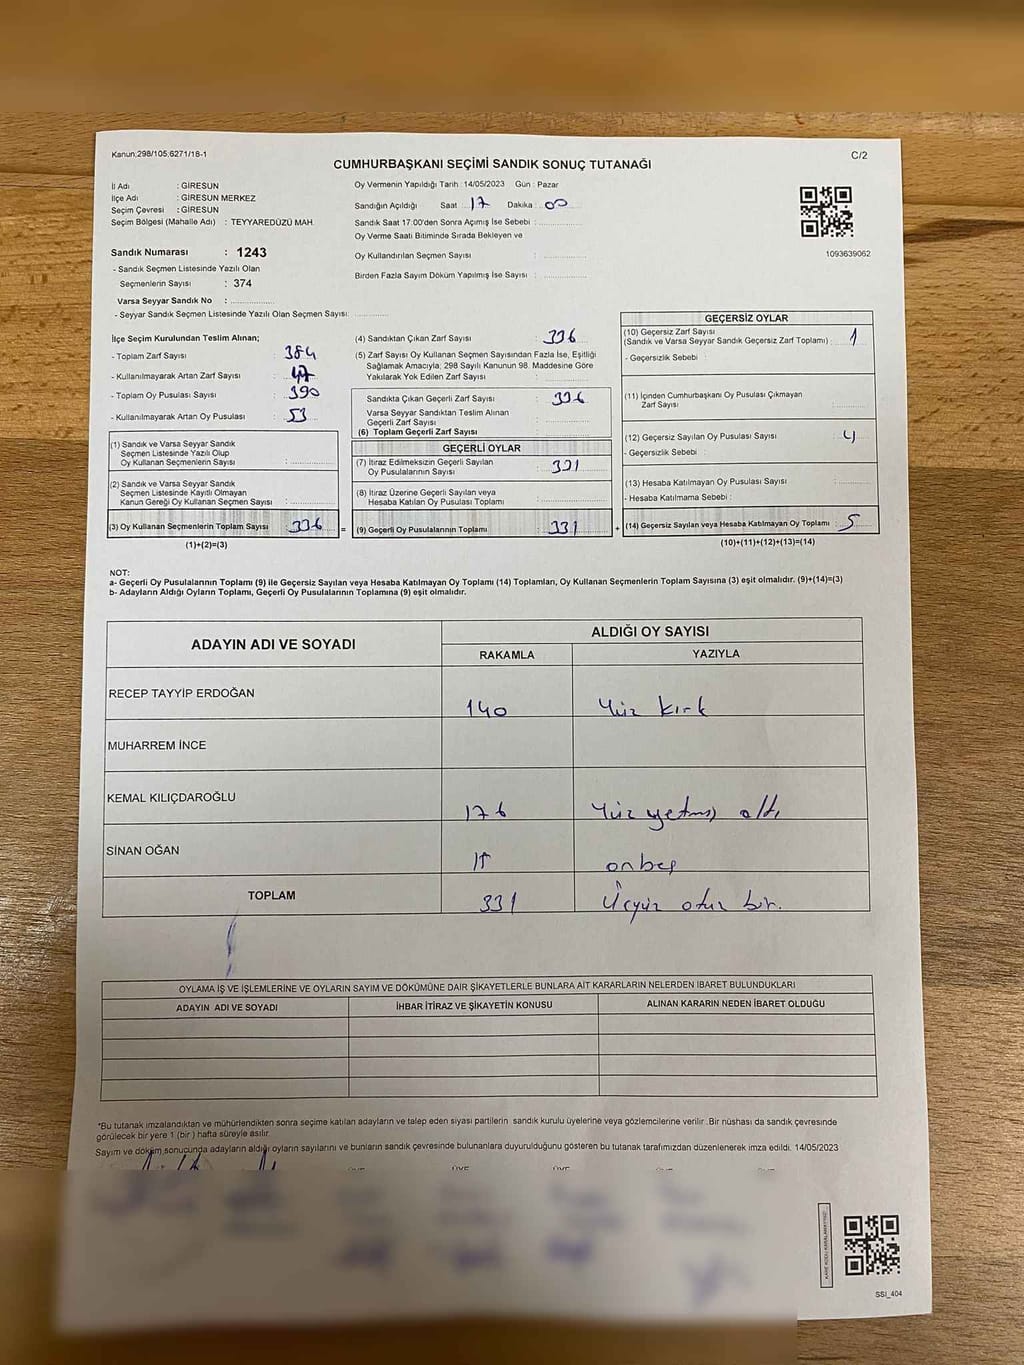 Kanun;298/105;6271/18-1
CUMHURBAŞKANI SEÇİMİ SANDIK SONUÇ TUTANAĞI
C/2
İl Adı : GİRESUN
İlçe Adı : GİRESUN MERKEZ
Seçim Çevresi : GİRESUN
Seçim Bölgesi (Mahalle Adı) : TEYYAREDÜZÜ MAH.
Oy Vermenin Yapıldığı Tarih : 14/05/2023 Gün : Pazar
Sandığın Açıldığı Saat 17 Dakika : 00
Sandık Saat 17.00'den Sonra Açımış İse Sebebi :
Oy Verme Saati Bitiminde Sırada Bekleyen ve
Oy Kullandırılan Seçmen Sayısı :
Birden Fazla Sayım Döküm Yapılmış İse Sayısı :
1093639062
Sandık Numarası : 1243
- Sandık Seçmen Listesinde Yazılı Olan
Seçmenlerin Sayısı : 374
Varsa Seyyar Sandık No :
- Seyyar Sandık Seçmen Listesinde Yazılı Olan Seçmen Sayısı:
İlçe Seçim Kurulundan Teslim Alınan;
- Toplam Zarf Sayısı : 384
- Kullanılmayarak Artan Zarf Sayısı :
- Toplam Oy Pusulası Sayısı : 390
- Kullanılmayarak Artan Oy Pusulası : 53
(1) Sandık ve Varsa Seyyar Sandık
Seçmen Listesinde Yazılı Olup
Oy Kullanan Seçmenlerin Sayısı :
(2) Sandık ve Varsa Seyyar Sandık
Seçmen Listesinde Kayıtlı Olmayan
Kanun Gereği Oy Kullanan Seçmen Sayısı :
(3) Oy Kullanan Seçmenlerin Toplam Sayısı : 336 =
(1)+(2)=(3)
(4) Sandıktan Çıkan Zarf Sayısı : 336
(5) Zarf Sayısı Oy Kullanan Seçmen Sayısından Fazla İse, Eşitliği
Sağlamak Amacıyla; 298 Sayılı Kanunun 98. Maddesine Göre
Yakılarak Yok Edilen Zarf Sayısı :
Sandıkta Çıkan Geçerli Zarf Sayısı : 336
Varsa Seyyar Sandıktan Teslim Alınan
Geçerli Zarf Sayısı :
(6) Toplam Geçerli Zarf Sayısı :
GEÇERLİ OYLAR
(7) İtiraz Edilmeksizin Geçerli Sayılan
Oy Pusulalarının Sayısı : 331
(8) İtiraz Üzerine Geçerli Sayılan veya
Hesaba Katılan Oy Pusulası Toplamı :
(9) Geçerli Oy Pusulalarının Toplamı : 331 +
GEÇERSİZ OYLAR
(10) Geçersiz Zarf Sayısı
(Sandık ve Varsa Seyyar Sandık Geçersiz Zarf Toplamı) : 1
- Geçersizlik Sebebi :
(11) İçinden Cumhurbaşkanı Oy Pusulası Çıkmayan
Zarf Sayısı :
(12) Geçersiz Sayılan Oy Pusulası Sayısı : 4
- Geçersizlik Sebebi :
(13) Hesaba Katılmayan Oy Pusulası Sayısı :
- Hesaba Katılmama Sebebi :
(14) Geçersiz Sayılan veya Hesaba Katılmayan Oy Toplamı : 5
(10)+(11)+(12)+(13)=(14)
NOT:
a- Geçerli Oy Pusulalarının Toplamı (9) ile Geçersiz Sayılan veya Hesaba Katılmayan Oy Toplamı (14) Toplamları, Oy Kullanan Seçmenlerin Toplam Sayısına (3) eşit olmalıdır. (9)+(14)=(3)
b- Adayların Aldığı Oyların Toplamı, Geçerli Oy Pusulalarının Toplamına (9) eşit olmalıdır.
ADAYIN ADI VE SOYADI
ALDIĞI OY SAYISI
RAKAMLA YAZIYLA
RECEP TAYYİP ERDOĞAN 140 Yüz kırk
MUHARREM İNCE
KEMAL KILIÇDAROĞLU 176 Yüz yetmiş altı
SİNAN OĞAN 15 onbeş
TOPLAM 331 Üçyüz otuz bir.
OYLAMA İŞ VE İŞLEMLERİNE VE OYLARIN SAYIM VE DÖKÜMÜNE DAİR ŞİKAYETLERLE BUNLARA AİT KARARLARIN NELERDEN İBARET BULUNDUKLARI
ADAYIN ADI VE SOYADI İHBAR İTİRAZ VE ŞİKAYETİN KONUSU ALINAN KARARIN NEDEN İBARET OLDUĞU
*Bu tutanak imzalandıktan ve mühürlendikten sonra seçime katılan adayların ve talep eden siyasi partilerin sandık kurulu üyelerine veya gözlemcilerine verilir. Bir nüshası da sandık çevresinde
görülecek bir yere 1 (bir) hafta süreyle asılır.
Sayım ve döküm sonucunda adayların aldığı oyların sayılarını ve bunların sandık çevresinde bulunanlara duyurulduğunu gösteren bu tutanak tarafımızdan düzenlenerek imza edildi. 14/05/2023
SSI_404